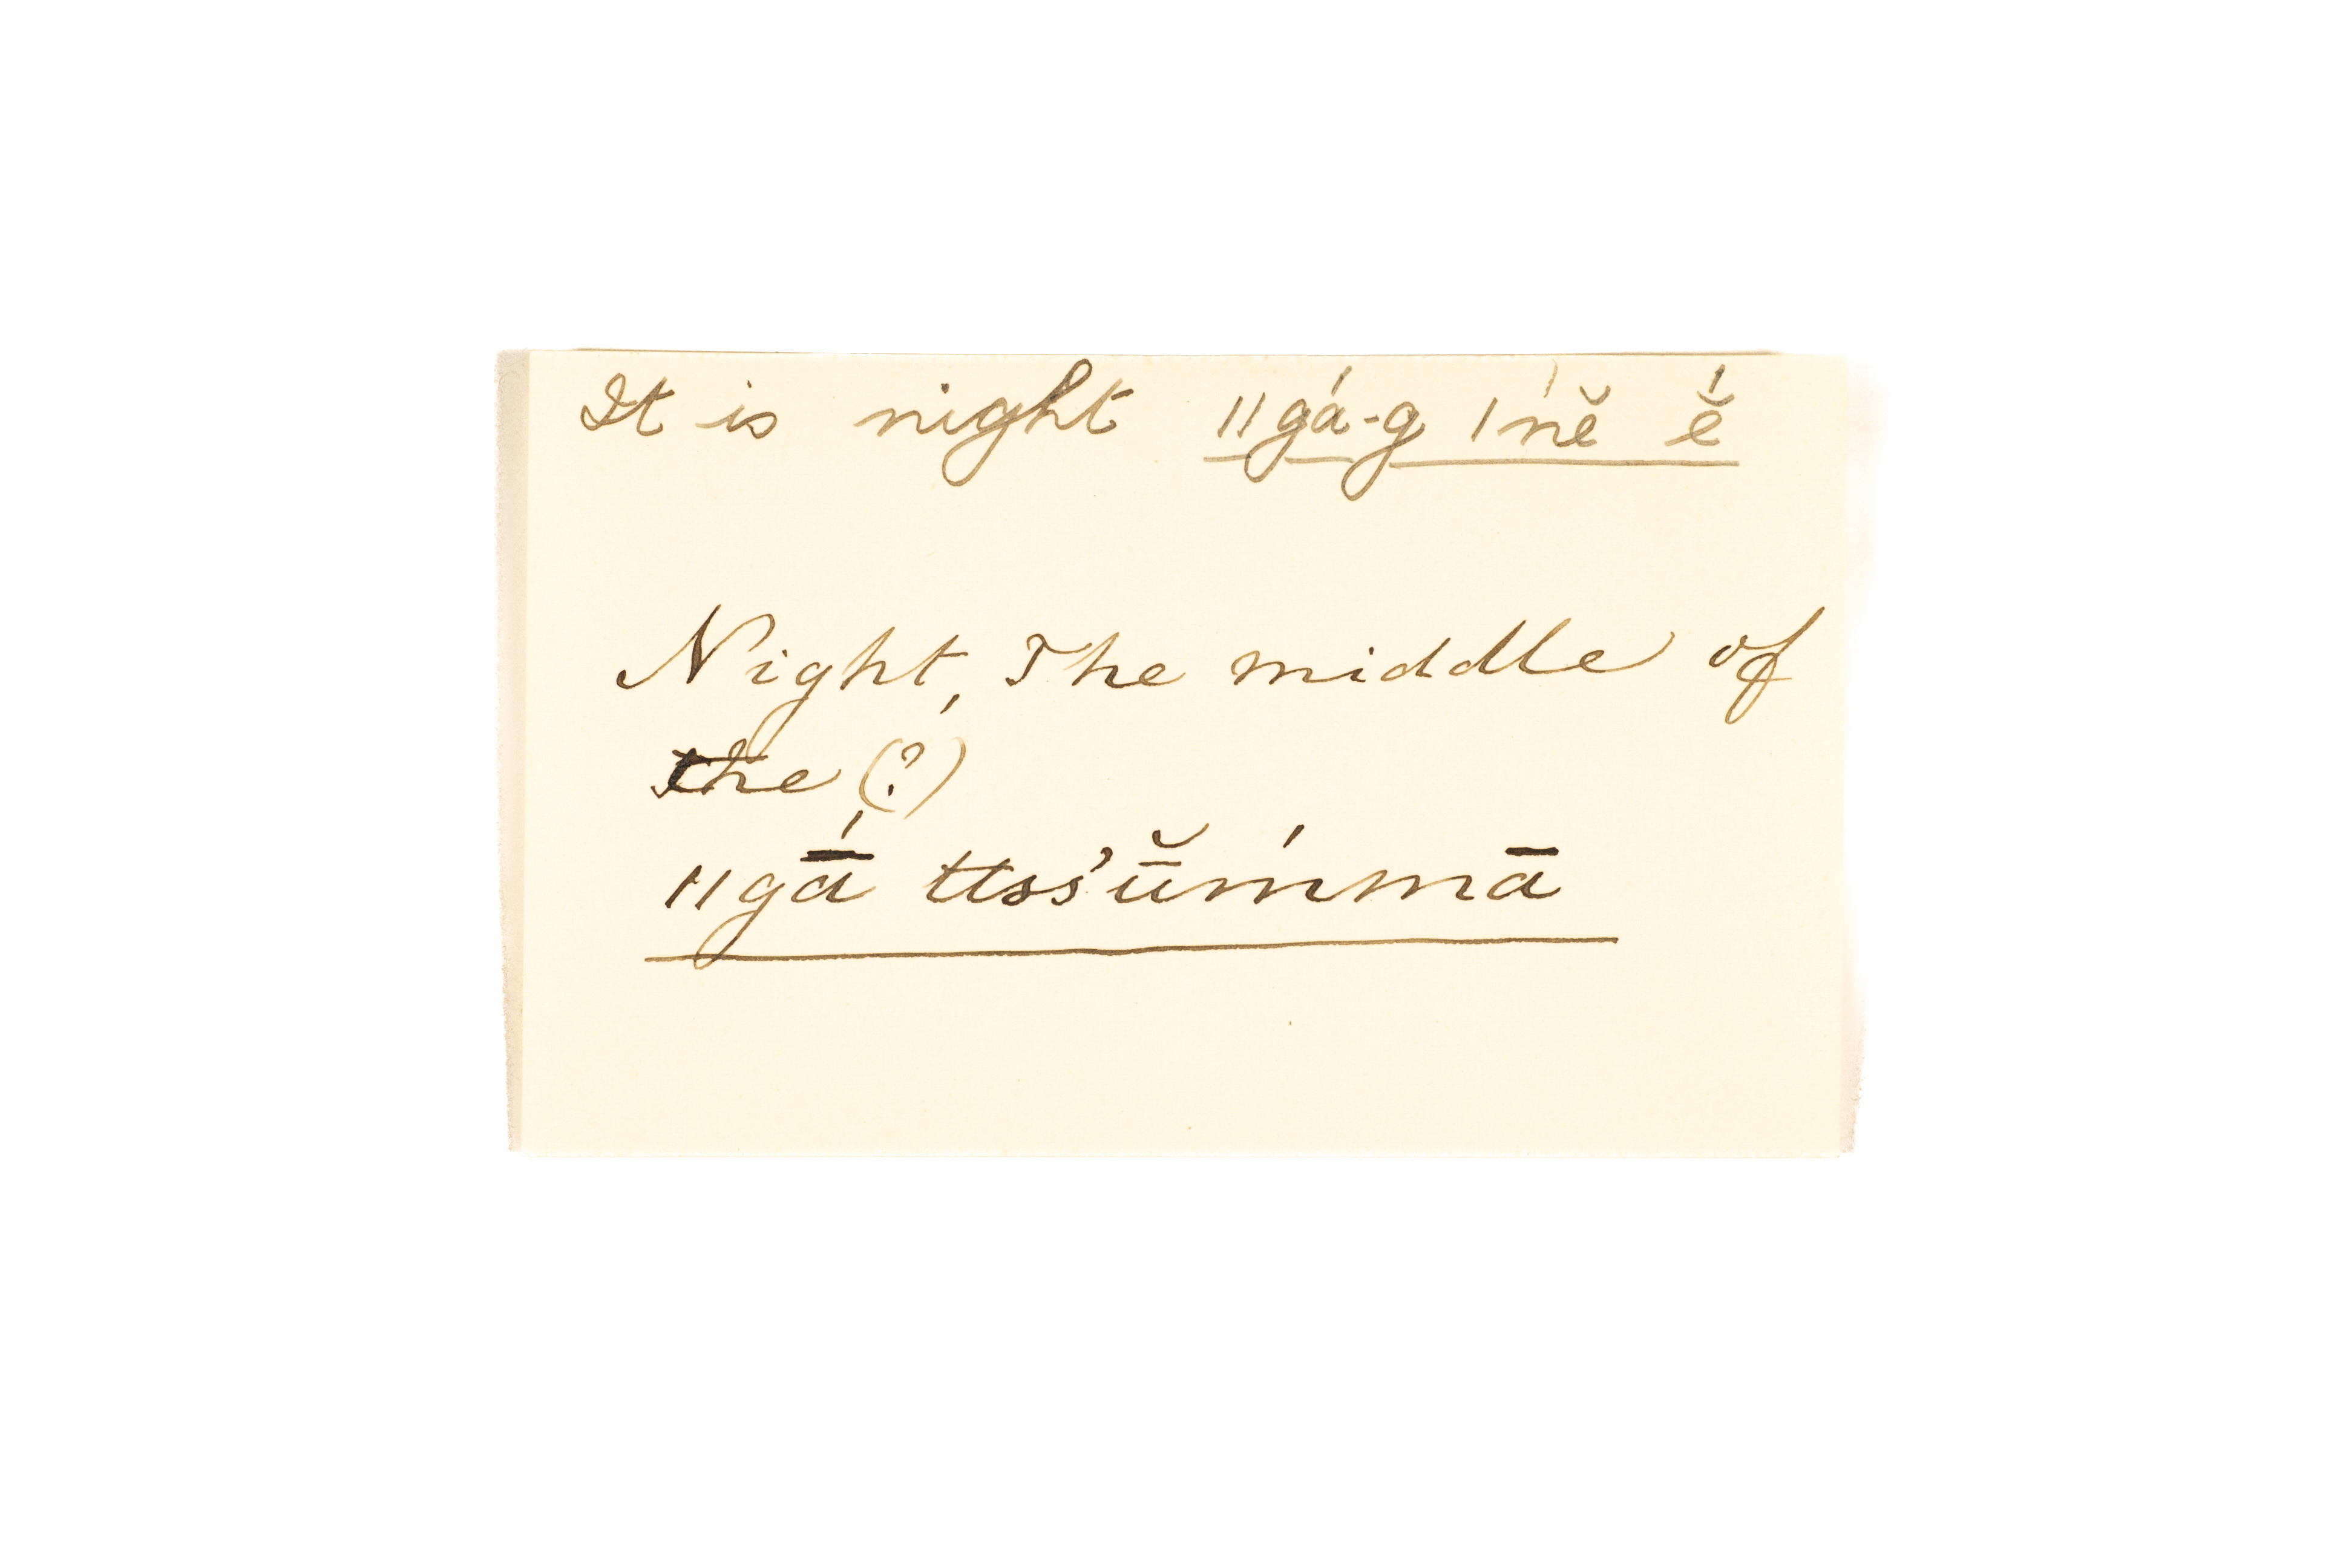 It is night ǁgá-g ǀńĕ ĕ́
Night, The middle of
the (?)
ǁgā́ ttss'ū̆ḿmā